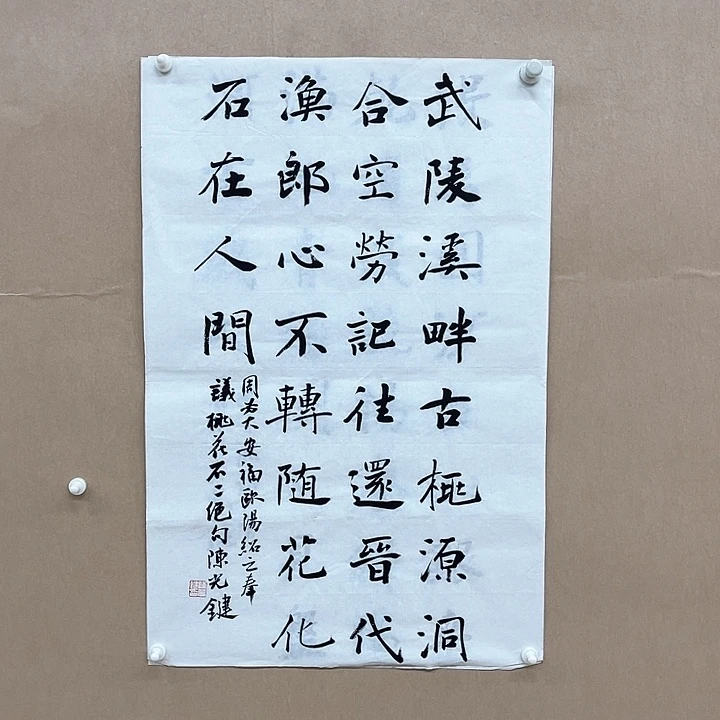 武陵溪畔古桃源洞
合空勞記往還晉代
漁郎心不轉随花化
石在人間
周必大安福歐陽紹之奉
議桃花石二絕句陳光鍵